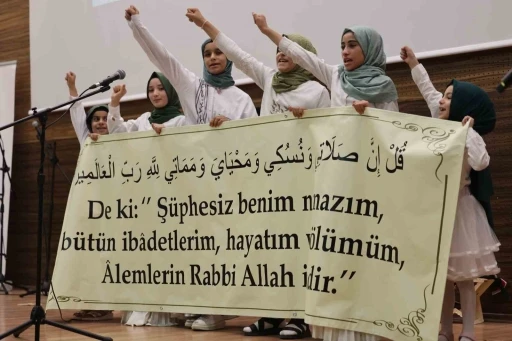 قُلْ إِنَّ صَلَاتِي وَنُسُكِي وَمَحْيَايَ وَمَمَاتِي لِلَّهِ رَبِّ الْعَالَمِينَ
De ki:’’ Şüphesiz benim namazım,
bütün ibâdetlerim, hayatım ölümüm,
Âlemlerin Rabbi Allah içindir.’’